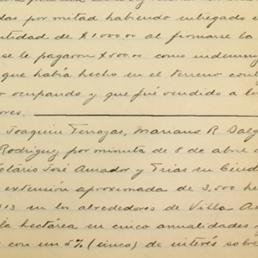 das por mitad habiendo entregado e
ntidad de $1000.00 al firmarse la
se le pagaron $500.00 como indemni
que había hecho en el terreno cont
o ocupando y que fué vendido a lo
ores.
Joaquin Terrazas, Mariano R. Salg
Rodriguez por minuta de 8 de abril
otario José Amador y Trías en Ciud
extensión aproximada de 3,000 he
13 en los alrededores de Villa A
la hectárea en cinco anualidades
con un 5% (cinco) de interés sobre